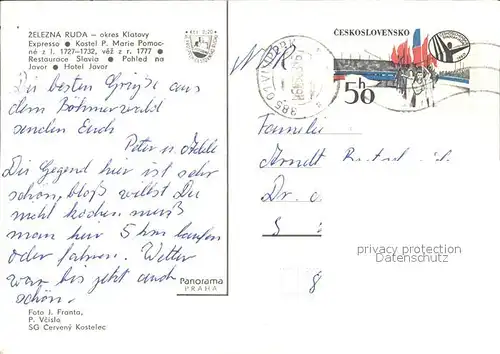 ŽELEZNA RUDA – okres Klatovy
Expresso ● Kostel P. Marie Pomoc-
né z l. 1727-1732, věž z r. 1777 ●
Restaurace Slavia ● Pohled na
Javor ● Hotel Javor
Die besten Grüße aus
dem Böhmerwald
senden Euch
Peter u.
Die Gegend hier ist sehr
schön, bloß willst Du
nicht kochen muß
man hier 5 km laufen
oder fahren. Wetter
war bis jetzt auch
schön.
Foto J. Franta,
P. Včislo
SG Červený Kostelec
Panorama
PRAHA
ČESKOSLOVENSKO
50h
385 01 VIMPERK
Familie
Arndt
Dr.
8
privacy protection
Datenschutz